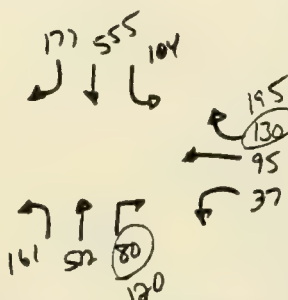 177 555 104
195
130
95
37
161 512 80
120